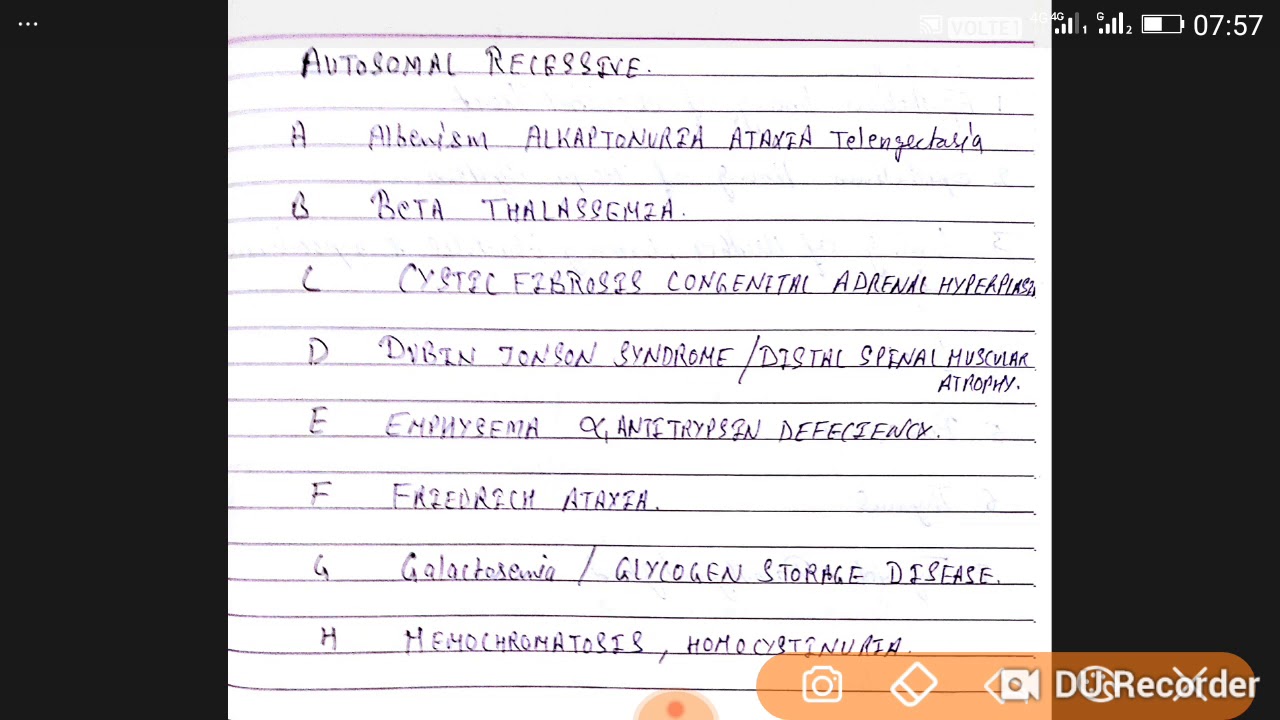 ...
VOLTE1 4G 4G 1 G 2 07:57
AUTOSOMAL RECESSIVE.
A Albenism ALKAPTONURIA ATAXIA Telengectasia
B BETA THALASSEMIA.
C CYSTIC FIBROSIS CONGENITAL ADRENAL HYPERPLASIA
D DUBIN JONSON SYNDROME / DISTAL SPINAL MUSCULAR
ATROPHY.
E EMPHYSEMA α1 ANTITRYPSIN DEFECIENCY.
F FRIEDRICH ATAXIA.
G Galactosemia / GLYCOGEN STORAGE DISEASE.
H HEMOCHROMATOSIS, HOMOCYSTINURIA.
DU Recorder